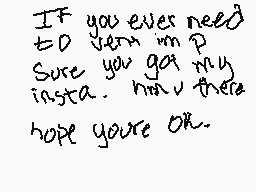 If you ever need
to vent im p
Sure you got my
insta. hmu there
hope youre ok.